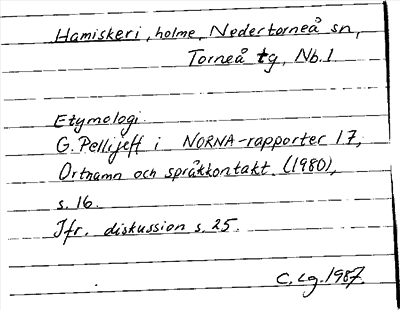 Hamiskeri, holme, Nedertorneå sn,
Torneå tg, Nb. l.
Etymologi.
G. Pellijeff i NORNA-rapporter 17,
Ortnamn och språkkontakt. (1980),
s. 16.
Jfr. diskussion s. 25.
C. Lg. 1987.